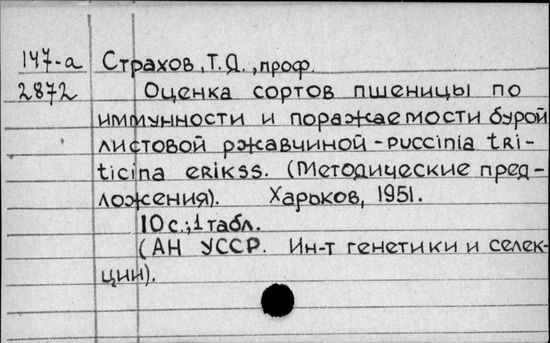 147-а Страхов, Т.Д., проф.
2872 Оценка сортов пшеницы по
иммунности и поражаемости бурой
листовой ржавчиной - puccinia tri-
ticina erikss. (Методические пред-
ложения). Харьков, 1951.
10 с.; 1 табл.
(АН УССР. Ин-т генетики и селек-
ции).